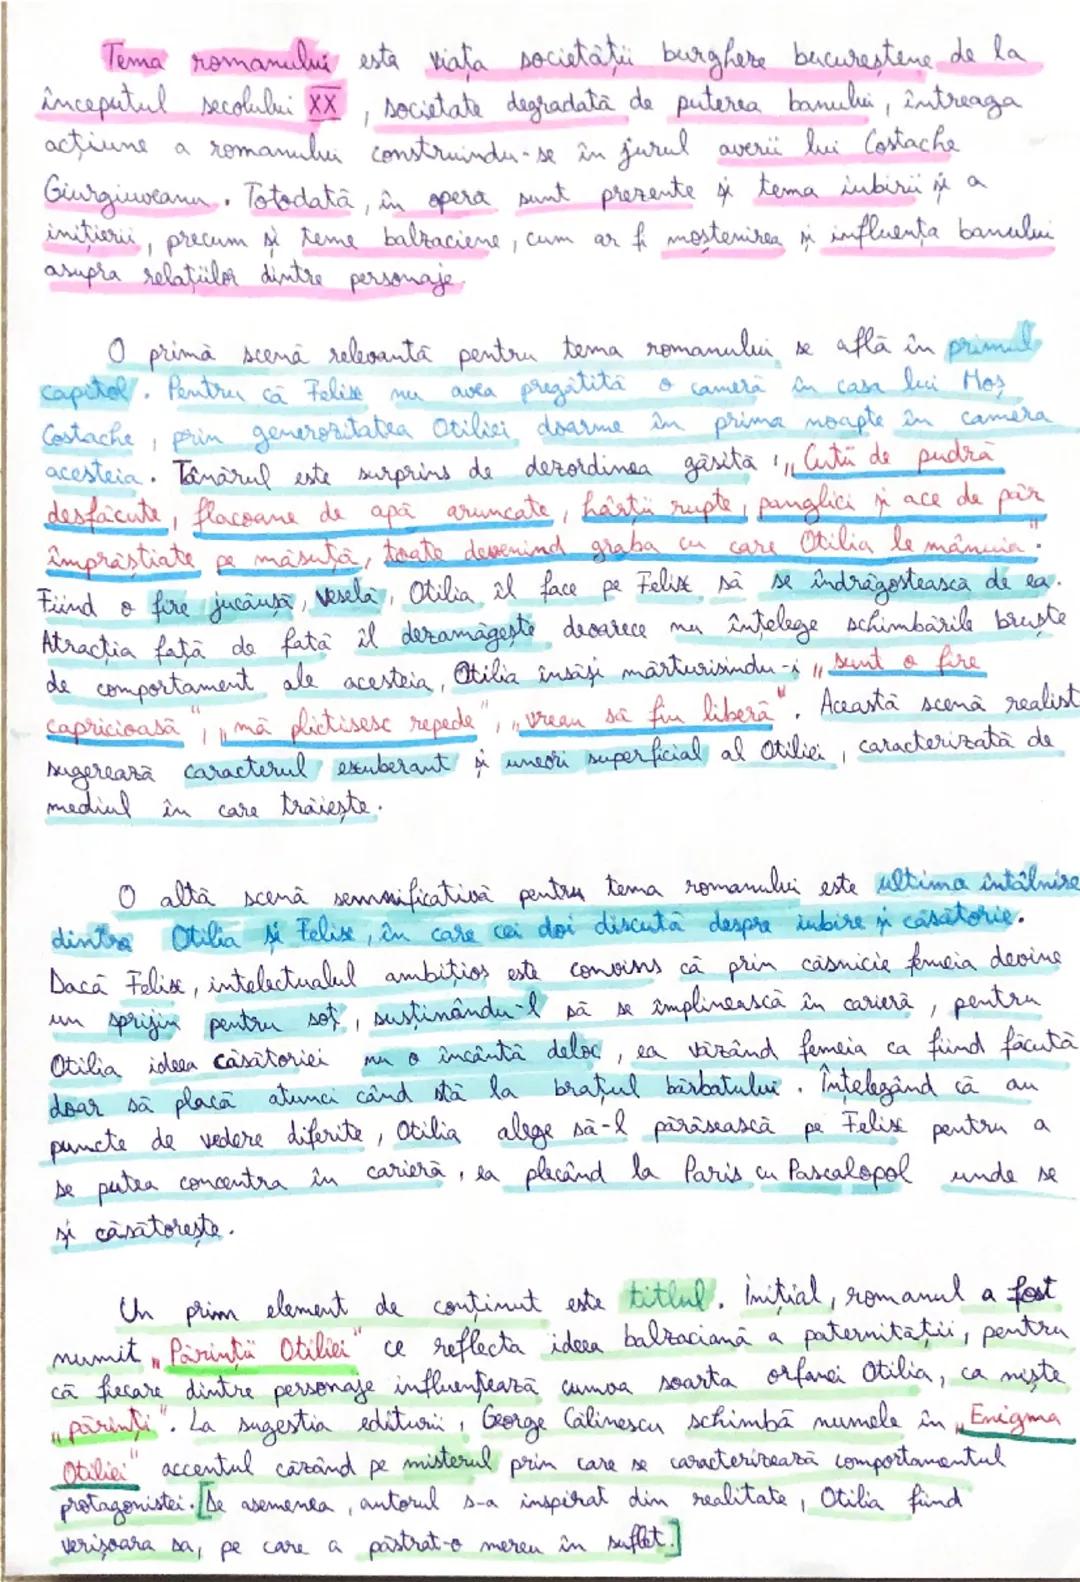 Tema romanului este viața societății burgheze bucureștene de la
începutul secolului XX, societate degradată de puterea banului, întreaga
acțiune a romanului construindu-se în jurul averii lui Costache
Giurgiuveanu. Totodată, în opera sunt prezente și tema iubirii și a
inițierii, precum și teme balzaciene, cum ar fi moștenirea și influența banului
asupra relațiilor dintre personaje.
O primă scenă relevantă pentru tema romanului se află în primul
capitol. Pentru că Felix nu avea pregătită o cameră în casa lui Moș
Costache, prin generozitatea Otiliei doarme în prima noapte în camera
acesteia. Tânărul este surprins de dezordinea găsită: „Cutii de pudră
desfăcute, flacoane de apă aruncate, hârtii rupte, panglici și ace de păr
împrăștiate pe măsuță, toate devenind graba cu care Otilia le mânuia".
Fiind o fire jucăușă, veselă, Otilia îl face pe Felix să se îndrăgostească de ea.
Atracția față de fată îl dezamăgește deoarece nu înțelege schimbările bruște
de comportament ale acesteia, Otilia însăși mărturisindu-i „sunt o fire
capricioasă", „mă plictisesc repede", „vreau să fiu liberă". Această scenă realist
sugerează caracterul exuberant și uneori superficial al Otiliei, caracterizată de
mediul în care trăiește.
O altă scenă semnificativă pentru tema romanului este ultima întâlnire
dintre Otilia și Felix, în care cei doi discută despre iubire și căsătorie.
Dacă Felix, intelectualul ambițios este convins că prin căsnicie femeia devine
un sprijin pentru soț, susținându-l să se împlinească în carieră, pentru
Otilia ideea căsătoriei nu o încântă deloc, ea văzând femeia ca fiind făcută
doar să placă atunci când stă la brațul bărbatului. Înțelegând că au
puncte de vedere diferite, Otilia alege să-l părăsească pe Felix pentru a
se putea concentra în carieră, ea plecând la Paris cu Pascalopol unde se
și căsătorește.
Un prim element de conținut este titlul. Inițial, romanul a fost
numit „Părinții Otiliei" ce reflectă ideea balzaciană a paternității, pentru
că fiecare dintre personaje influențează cumva soarta orfanei Otilia, ca niște
„părinți". La sugestia editurii, George Călinescu schimbă numele în „Enigma
Otiliei" accentul căzând pe misterul prin care se caracterizează comportamentul
protagonistei. [De asemenea, autorul s-a inspirat din realitate, Otilia fiind
verișoara sa, pe care a păstrat-o mereu în suflet.]